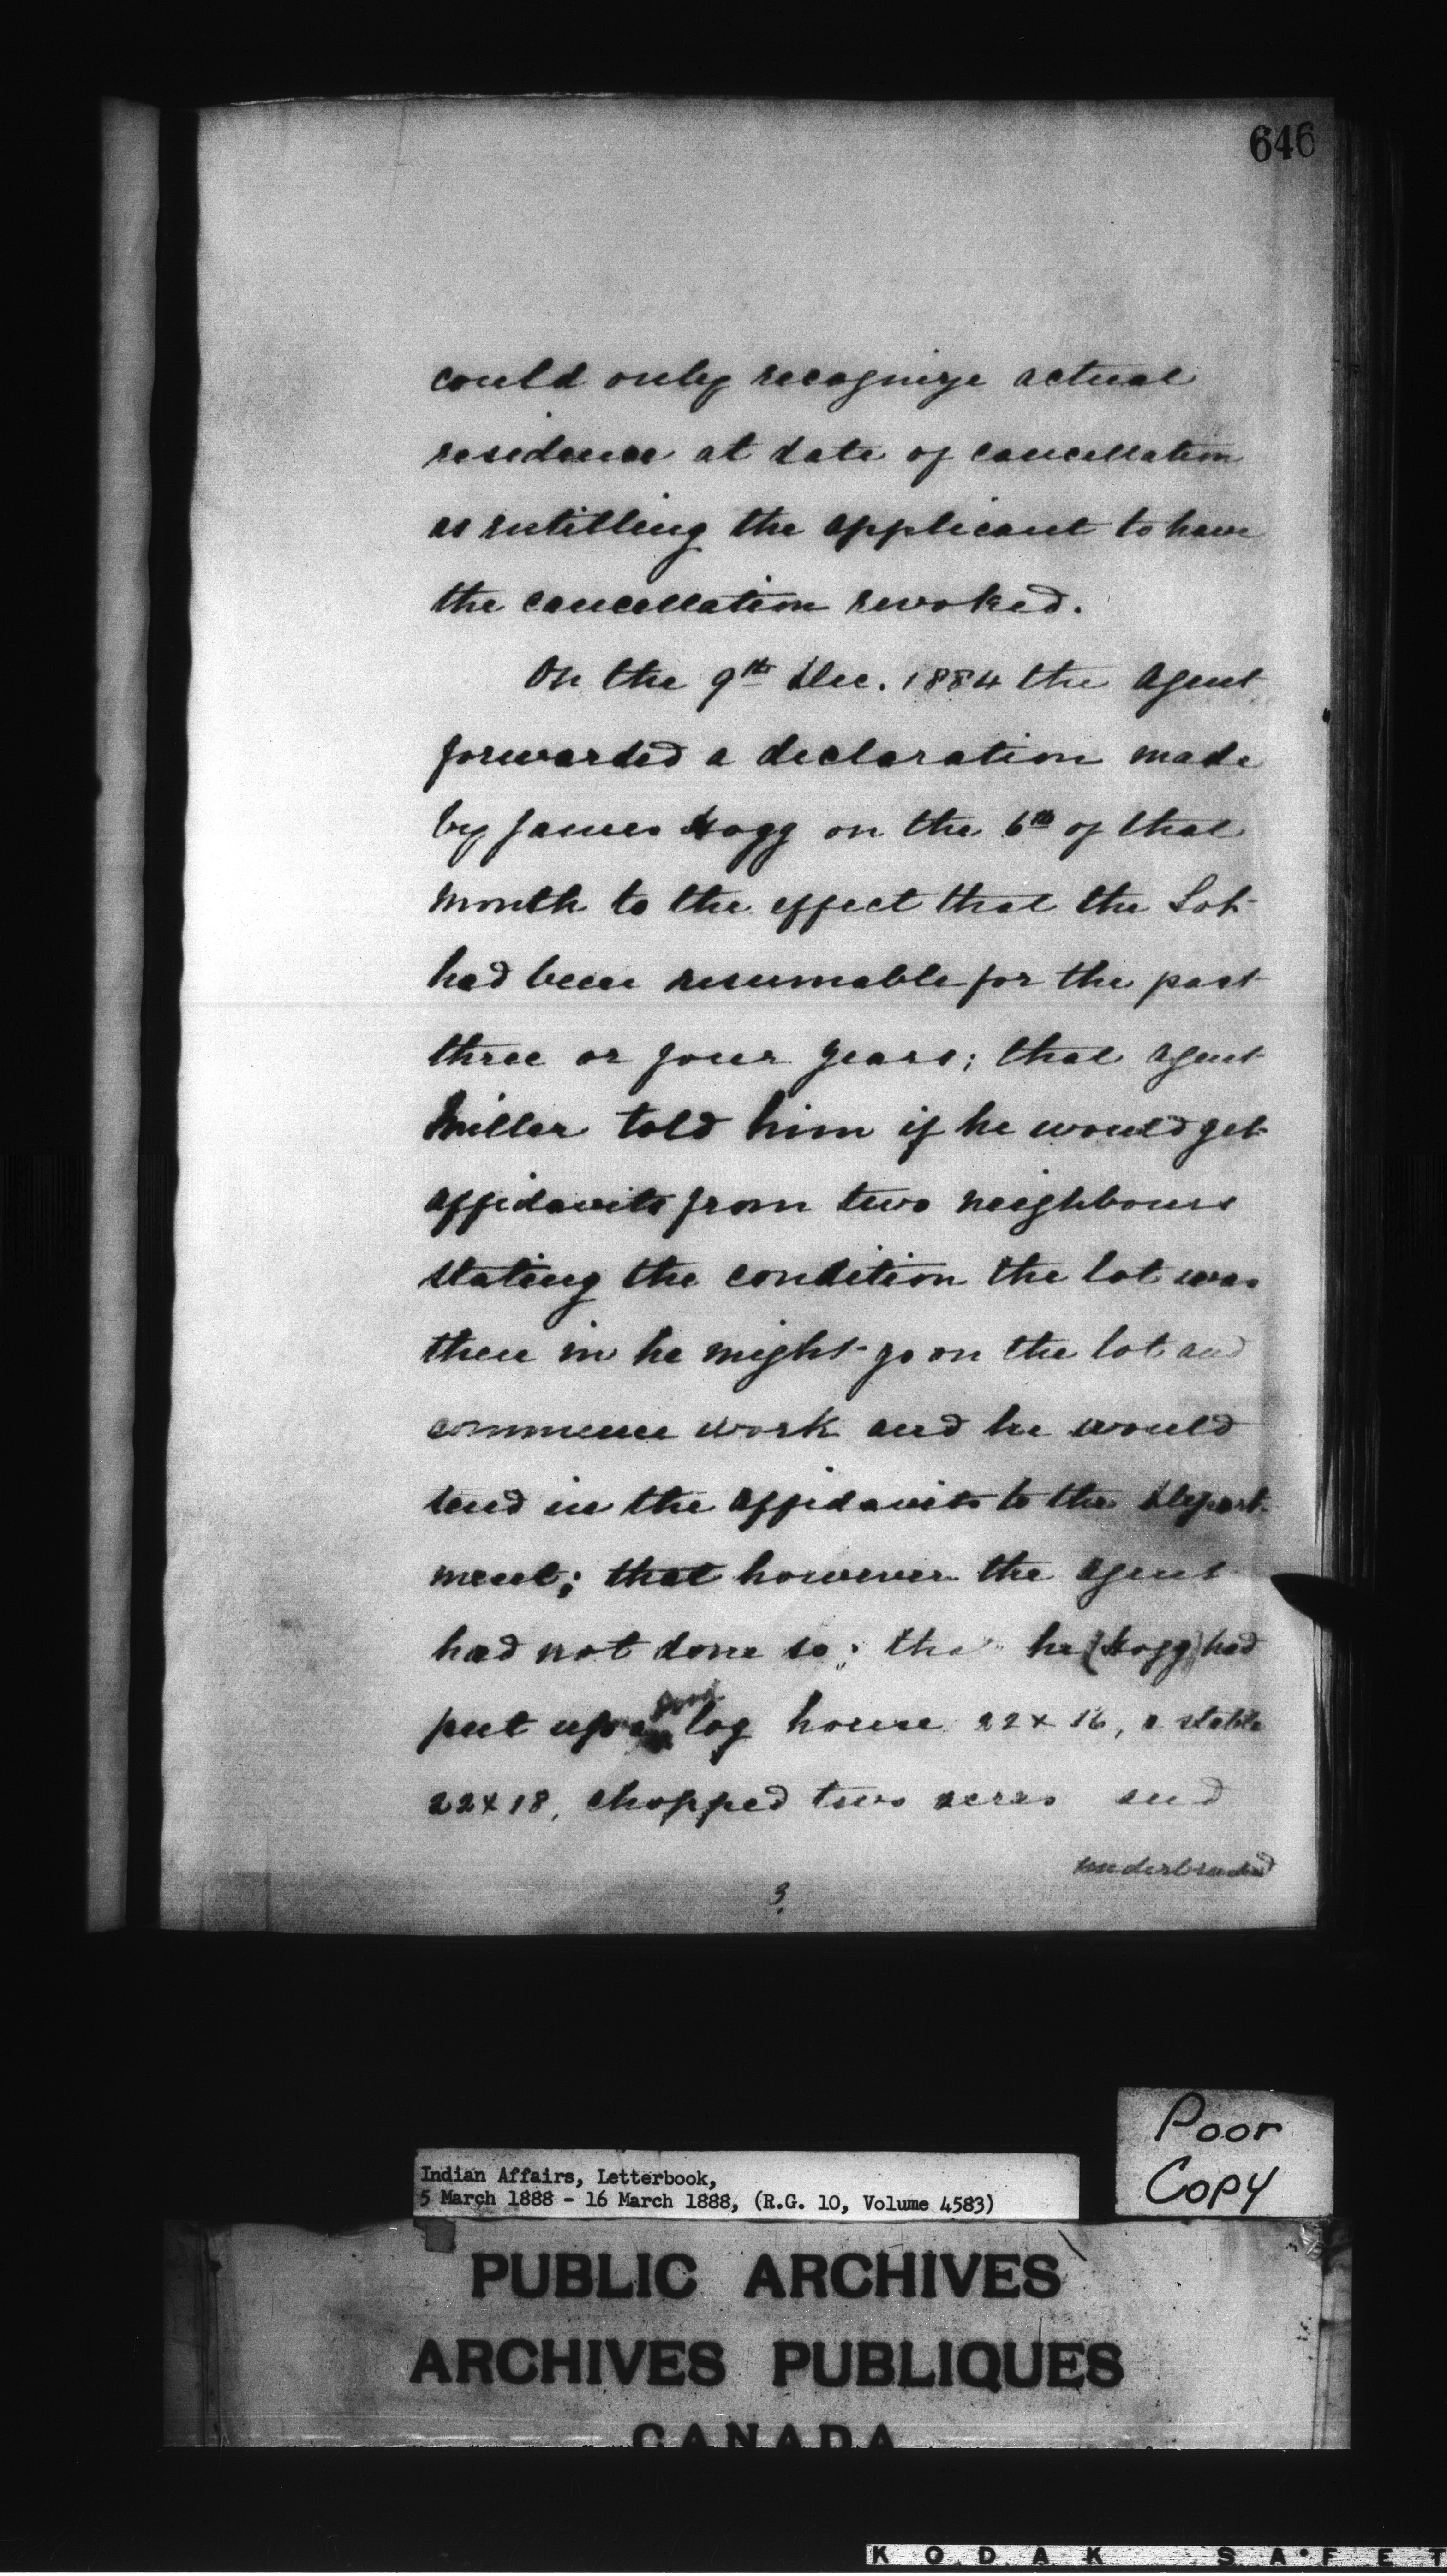 646
could only recognize actual
residence at date of cancellation
as entitling the applicant to have
the cancellation revoked.
On the 9th Dec. 1884 the Agent
forwarded a declaration made
by James Hogg on the 6th of that
month to the effect that the Lot
had been resumable for the past
three or four years; that Agent
Miller told him if he would get
affidavits from two neighbours
stating the condition the lot was
then in he might go on the lot and
commence work and he would
send in the affidavits to the Depart-
ment; that however the Agent
had not done so; that he (Hogg) had
put up a good log house 22 x 16, a stable
22 x 18, chopped two acres and
underbrushed
3.
Poor
Copy
Indian Affairs, Letterbook,
5 March 1888 - 16 March 1888, (R.G. 10, Volume 4583)
PUBLIC ARCHIVES
ARCHIVES PUBLIQUES
CANADA
KODAK SAFET